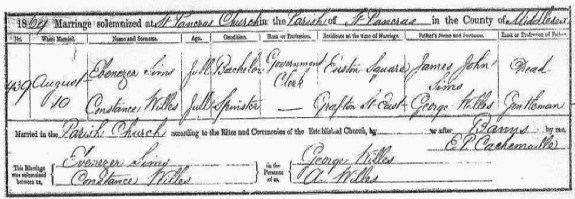 1864 Marriage solemnized at St Pancras Church in the Parish of St Pancras in the County of Middlesex
No. When Married. Name and Surname. Age. Condition. Rank or Profession. Residence at the time of Marriage. Father's Name and Surname. Rank or Profession of Father.
439 August 10 Ebenezer Sims Full Bachelor Government Clerk Euston Square James John Sims Dead
Constance Willes Full Spinster — Grafton St East George Willes Gentleman
Married in the Parish Church according to the Rites and Ceremonies of the Established Church, by or after Banns by me,
E P Cachemaille
This Marriage was solemnized between us, Ebenezer Sims Constance Willes in the Presence of us, George Willes A. Willes